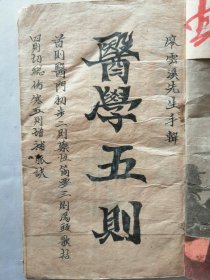 廖雲溪先生手輯
醫學五則
首則醫門初步二則藥性簡要三則湯頭歌括
四則切總傷寒五則增補脈訣